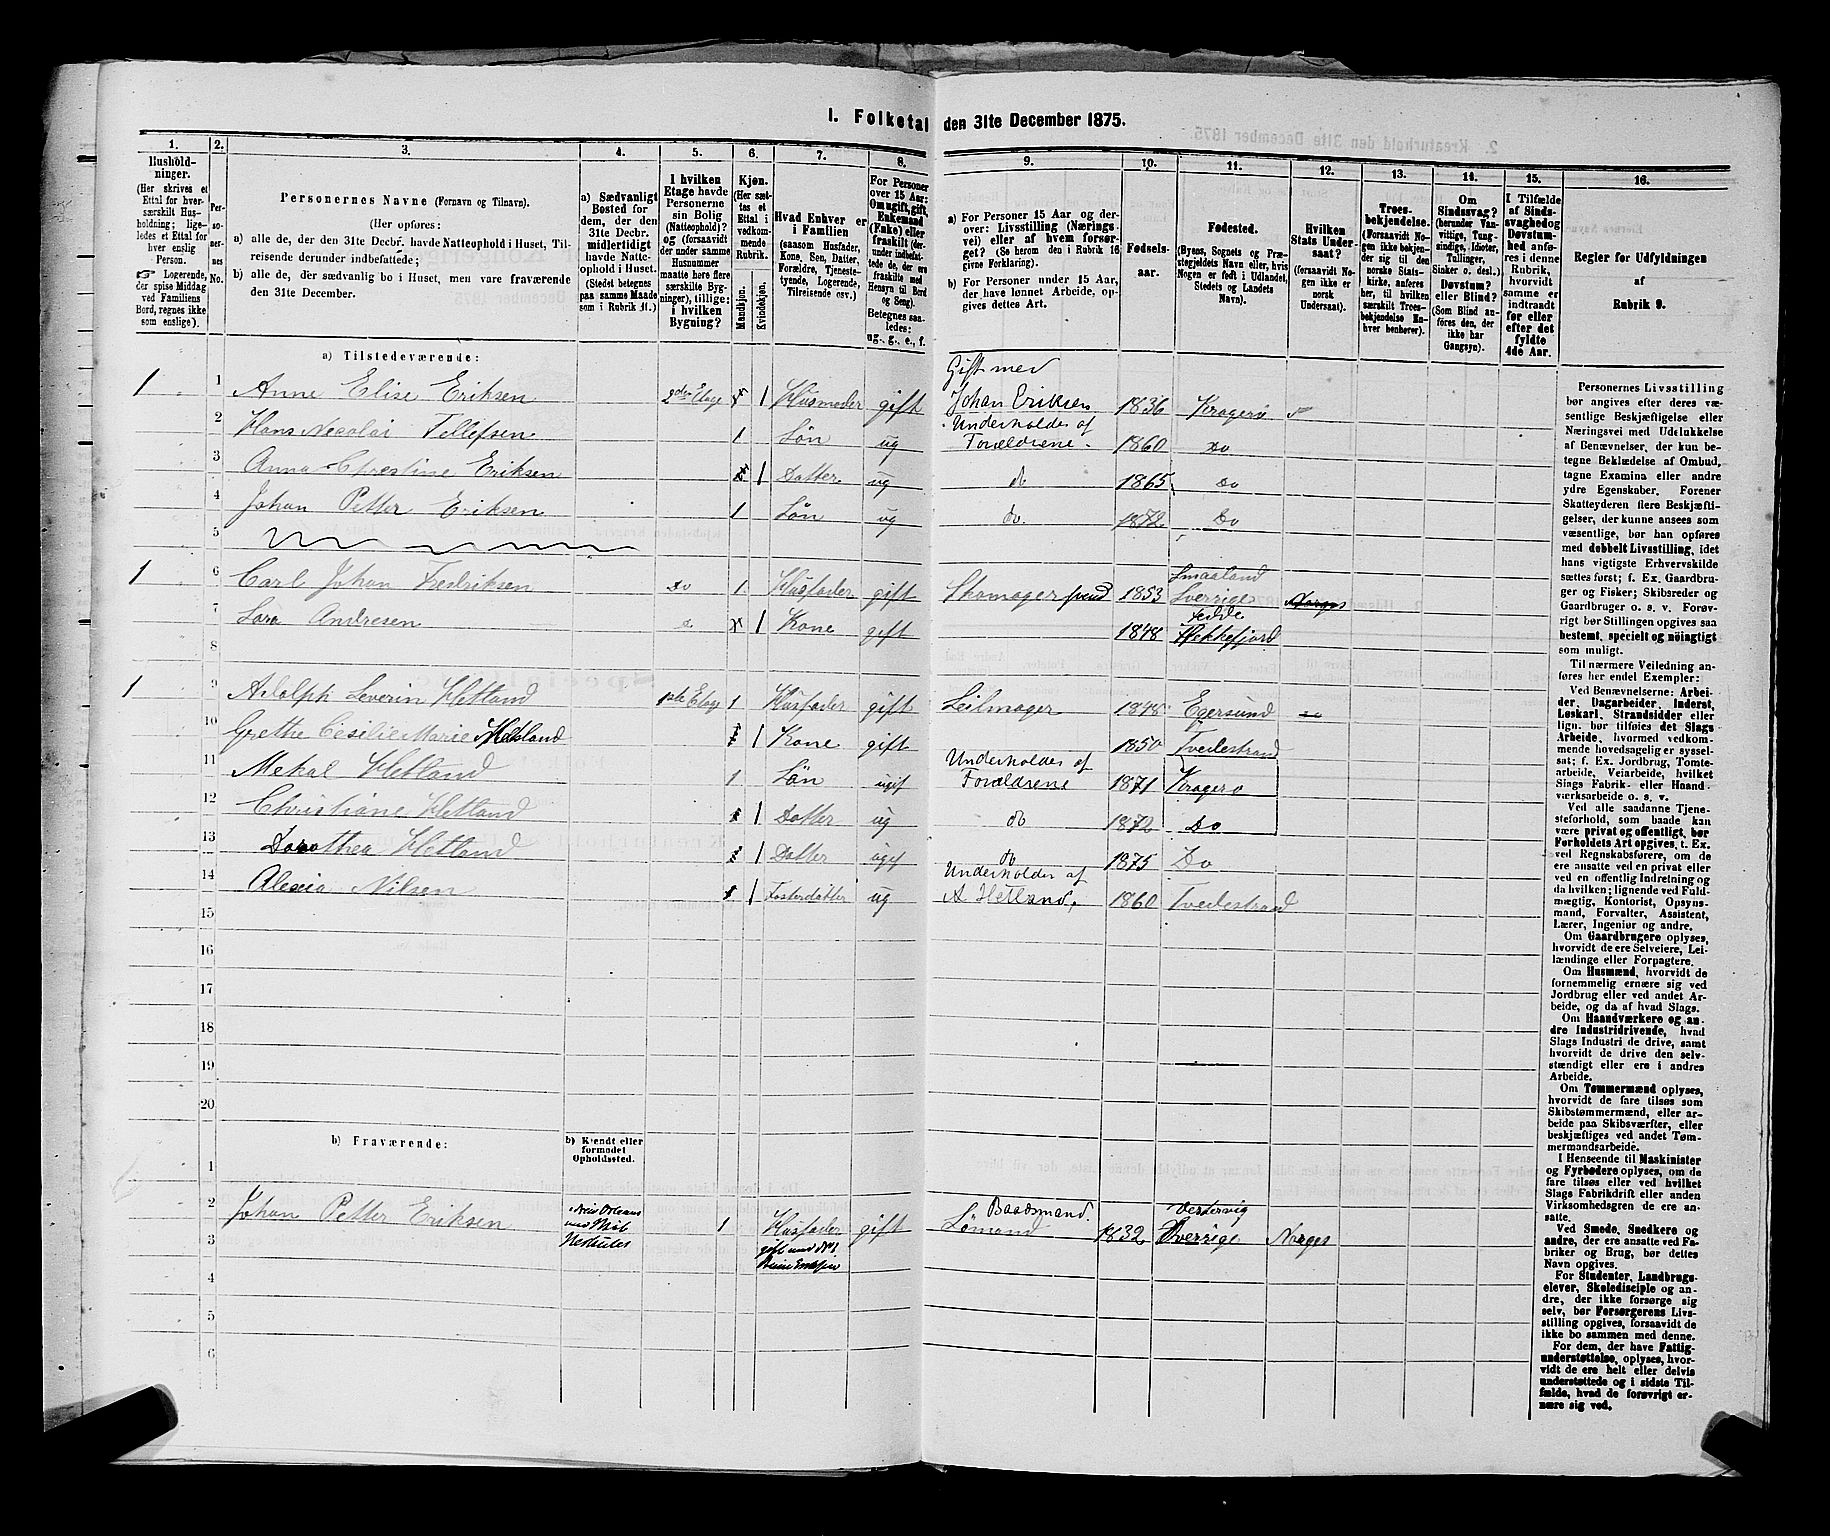 I. Folketal den 31te December 1875.
1. 2. 3. 4. 5. 6. 7. 8. 9. 10. 11. 12. 13. 14. 15. 16.
Hushold-
ninger.
(Her skrives et
Ettal for hver
særskilt Hus-
holdning; lige-
ledes et Ettal for
hver enslig
Person.
☞ Logerende,
der spise Middag
ved Familiens
Bord, regnes ikke
som enslige).
Per-
so-
ner-
nes
No.
Personernes Navne (Fornavn og Tilnavn).
(Her opføres:
a) alle de, der den 31te Decbr. havde Natteophold i Huset, Til-
reisende derunder indbefattede;
b) alle de, der sædvanlig bo i Huset, men vare fraværende
den 31te December.
a) Sædvanligt
Bosted for
dem, der den
31te Decbr.
midlertidigt
havde Natte-
ophold i Huset.
(Stedet betegnes
paa samme Maade
som i Rubrik 11.)
I hvilken
Etage havde
Personerne
sin Bolig
(Natteophold)?
og (forsaavidt
der under samme
Husnummer
maatte være flere
særskilte Byg-
ninger), tillige:
i hvilken
Bygning?
Kjøn.
(Her sæt-
tes et
Ettal i
vedkom-
mende
Rubrik.
Mandkjøn.
Kvindekjøn.
Hvad Enhver er
i Familien
(saasom Husfader,
Kone, Søn, Datter,
Forældre, Tjeneste-
tyende, Logerende,
Tilreisende osv.)
For Personer
over 15 Aar:
Om ugift, gift,
Enkemand
(Enke) eller
fraskilt (der-
under indbefat-
tede de, der ere
fraskilte med
Hensyn til Bord
og Seng).
Betegnes saa-
ledes:
ug., g., e., f.
a) For Personer 15 Aar og der-
over: Livsstilling (Nærings-
vei) eller af hvem forsør-
get? (Se herom den i Rubrik 16
givne Forklaring).
b) For Personer under 15 Aar,
der have lønnet Arbeide, op-
gives dettes Art.
Fødsels-
aar.
Fødested.
(Byens, Sognets og Præ-
stegjeldets Navn eller, hvis
Nogen er født i Udlandet,
Stedets og Landets
Navn).
Hvilken
Stats Under-
saat?
(forsaavidt No-
gen ikke er
norsk
Undersaat).
Troes-
bekjendelse.
(Forsaavidt No-
gen ikke bekjen-
der sig til den
norske Stats-
kirke, anføres
her, til hvilken
særskilt Troes-
bekjendelse En-
hver benhører).
Om
Sindssvag?
(herunder Van-
vittige, Tung-
sindige, Idioter,
Tullinger,
Sinker o. desl.).
Døvstum?
eller Blind?
(Som Blind an-
føres den, der
ikke har
Gangsyn).
I Tilfælde
af Sinds-
svaghed og
Døvstum-
hed anfø-
res i denne
Rubrik,
hvorvidt
samme er
indtraadt
før eller
efter det
fyldte
4de Aar.
Regler for Udfyldningen
af
Rubrik 9.
a) Tilstedeværende:
1 1 Anne Elise Eriksen 2den Etage 1 Husmoder gift Gift med
Johan Eriksen 1836 Kragerø
2 Hans Nicolai Tellefsen 1 Søn ug Underholdes af
Forældrene. 1860 Do
3 Anna Chrestine Eriksen 1 Datter ug do 1865 Do
4 Johan Petter Eriksen 1 Søn ug do. 1872 Do
5
1 6 Carl Johan Fredriksen Do 1 Husfader gift Skomagersvend 1853 Smaaland
Sverrige Norges
7 Sara Andresen 1 Kone gift 1848 Fedde
Hekkefjord
8
1 9 Adolph Severin Hetland 1ste Etage 1 Husfader gift Seilmager 1848 Egersund
10 Grethe Cesilie Marie Hetland 1 Kone gift 1850 Tvedestrand
11 Mekal Hetland 1 Søn ugif Underholdes af
Forældrene 1871 Kragerø
12 Christiane Hetland 1 Datter ug do 1872 Do
13 Dorothea Hetland 1 Datter ugif do 1875 Do
14 Alexia Nilsen 1 Fosterdatter ug Underholdes af
A Hetland, 1860 Tvedestrand
15
16
17
18
19
20
b) Fraværende:
b) Kjendt eller
formodet
Opholdssted.
1
2
Johan Petter Eriksen New Orleans
med Skib
Herkules 1 Husfader gift Baadsmand.
Sømand 1832 Vestervig
Sverrige Norges
3
4
5
6
Personernes Livsstilling
bør angives efter deres væ-
sentlige Beskjæftigelse eller
Næringsvei med Udelukkelse
af Benævnelser, der kun be-
tegne Beklædelse af Ombud,
tagne Examina eller andre
ydre Egenskaber. Forener
Skatteyderen flere Beskjæfti-
gelser, der kunne ansees som
væsentlige, bør han opføres
med dobbelt Livsstilling, idet
hans vigtigste Erhvervskilde
sættes først; f. Ex. Gaardbru-
ger og Fisker; Skibsreder og
Gaardbruger o. s. v. Forøv-
rigt bør Stillingen opgives saa
bestemt, specielt og nøiagtigt
som muligt.
Til nærmere Veiledning an-
føres her endel Exempler:
Ved Benævnelserne: Arbei-
der, Dagarbeider, Inderst,
Løskarl, Strandsidder eller
lign. bør tilføies det Slags
Arbeide, hvormed vedkom-
mende hovedsagelig er syssel-
sat; f. Ex. Jordbrug, Tomte-
arbeide, Veiarbeide, hvilket
Slags Fabrik- eller Haand-
værksarbeide o. s. v.
Ved alle saadanne Tjene-
steforhold, som baade kan
være privat og offentligt, bør
Forholdets Art opgives, t. Ex.
ved Regnskabsførere, om de
ere ansatte ved en privat eller
ved en offentlig Indretning og
da hvilken; lignende ved Fuld-
mægtig, Kontorist, Opsyns-
mand, Forvalter, Assistent,
Lærer, Ingeniør og andre.
Om Gaardbrugere oplyses,
hvorvidt de ere Selveiere, Lei-
lændinge eller Forpagtere.
Om Husmænd, hvorvidt de
fornemmelig ernære sig ved
Jordbrug eller ved andet Ar-
beide, og da af hvad Slags.
Om Haandværkere og an-
dre Industridrivende, hvad
Slags Industri de drive, samt
hvorvidt de drive den selv-
stændigt eller ere i andres
Arbeide.
Om Tømmermænd oplyses,
hvorvidt de fare tilsøs som
Skibstømmermænd, eller ar-
beide paa Skibsværfter, eller
beskjæftiges ved andet Tøm-
mermandsarbeide.
I Henseende til Maskinister
og Fyrbødere oplyses, om de
fare tilsøs eller ved hvilket
Slags Fabrikdrift eller anden
Virksomhedsgren de ere an-
satte.
Ved Smede, Snedkere og
andre, der ere ansatte ved Fa-
briker og Brug, bør dettes
Navn opgives.
For Studenter, Landbrugs-
elever, Skoledisciple og an-
dre, der ikke forsørge sig
selv, bør Forsørgerens Livs-
stilling opgives, forsaavidt de
ikke bo sammen med denne.
For dem, der have Fattig-
understøttelse, oplyses, hvor-
vidt de ere helt eller delvis
understøttede og i sidste Til-
fælde, hvad de forøvrigt er-
nære sig ved.